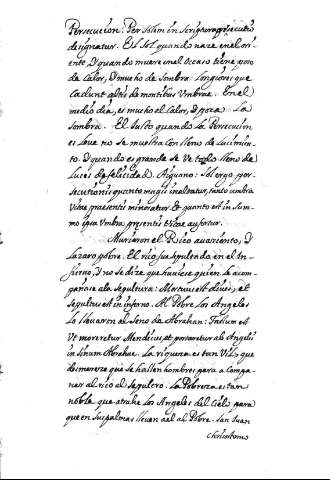 Persecucion: Per Solem in Scriptura persecutio
designatur. El Sol quando naze en el ori-
ente, y quando muere en el Oceano tiene poco
de Calor, y mucho de Sombra: Longiores que
cadunt altis de montibus Umbrae. En el
medio dia, es mucho el Calor, y poca la
Sombra. El Justo quando la Persecucion
es leve no se muestra con lleno de lucimien-
to. y quando es grande se ve todo lleno de
Luces de felicidad. Aiguano: Sol ergo per-
secutionis quanto magis inalteratur, tanto umbra
Vitae praesentis minoratur. & quanto est in Sum-
mo ipsa Umbra presentis Vitae aufertur.
Murieron el Rico avariento, y
Lazaro pobre. El rico fue Sepultado en el In-
fierno, y no se dize que huviese quien le acom-
pañase a la Sepultura: Mortuus est dives, et
Sepultus est in inferno. Al Pobre los Angeles
lo llevaron al Seno de Abrahan: Factum est
Ut moreretur Mendicus, et portaretur ab Angelis
in Sinum Abrahae. La riqueza es tan Vil, que
desmereze que se hallen hombres para acompa-
ñar al rico al Sepulcro. La Pobreza es tan
noble, que atrahe los Angeles del Cielo, para
que en sus palmas lleven a el al Pobre. San Juan
Chrisostomo